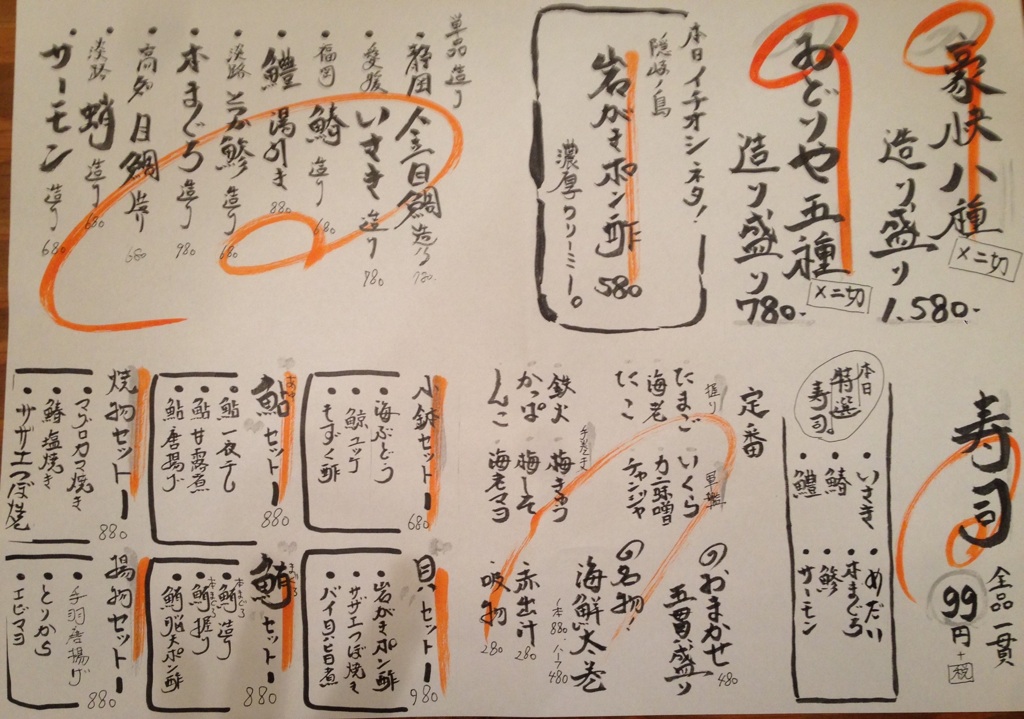 豪快八種
造り盛り
×二切
1,580-
おどりや五種
造り盛り
×二切
780-
本日イチオシネタ！
隠岐ノ島
岩がきポン酢
580
濃厚クリーミー。
単品造り
・静岡 金目鯛 造り 980
・愛媛 いさき 造り 980
・福岡 鰆 造り 680
・鱧 湯引き 880
・淡路 とろ鯵 造り 680
・本まぐろ 造り 980
・高知 目鯛 造り 680
・淡路 蛸 造り 680
・サーモン 造り 680
寿司
全品一貫
99円+税
本日特選寿司。
・いさき
・鰆
・鱧
・めだい
・本まぐろ
・鯵
・サーモン
定番
握り
たまご
海老
たこ
軍艦
いくら
カニ味噌
チャンジャ
手巻き
鉄火
かっぱ
しんこ
梅きゅう
梅しそ
海老マヨ
のおまかせ
五貫盛り
480
の名物！
海鮮太巻
一本880 ハーフ480
赤出汁 280
吸物 280
小鉢セット
680
・海ぶどう
・鯨ユッケ
・もずく酢
鮎セット
880
・鮎一夜干し
・鮎甘露煮
・鮎唐揚げ
焼物セット
880
・マグロカマ焼き
・鰆塩焼き
・サザエつぼ焼
貝セット
980
・岩がきポン酢
・サザエつぼ焼き
・バイ貝旨煮
鮪セット
880
・鮪造り
・鮪握り
・鮪脳天ポン酢
揚物セット
880
・手羽唐揚げ
・とりから
・エビマヨ